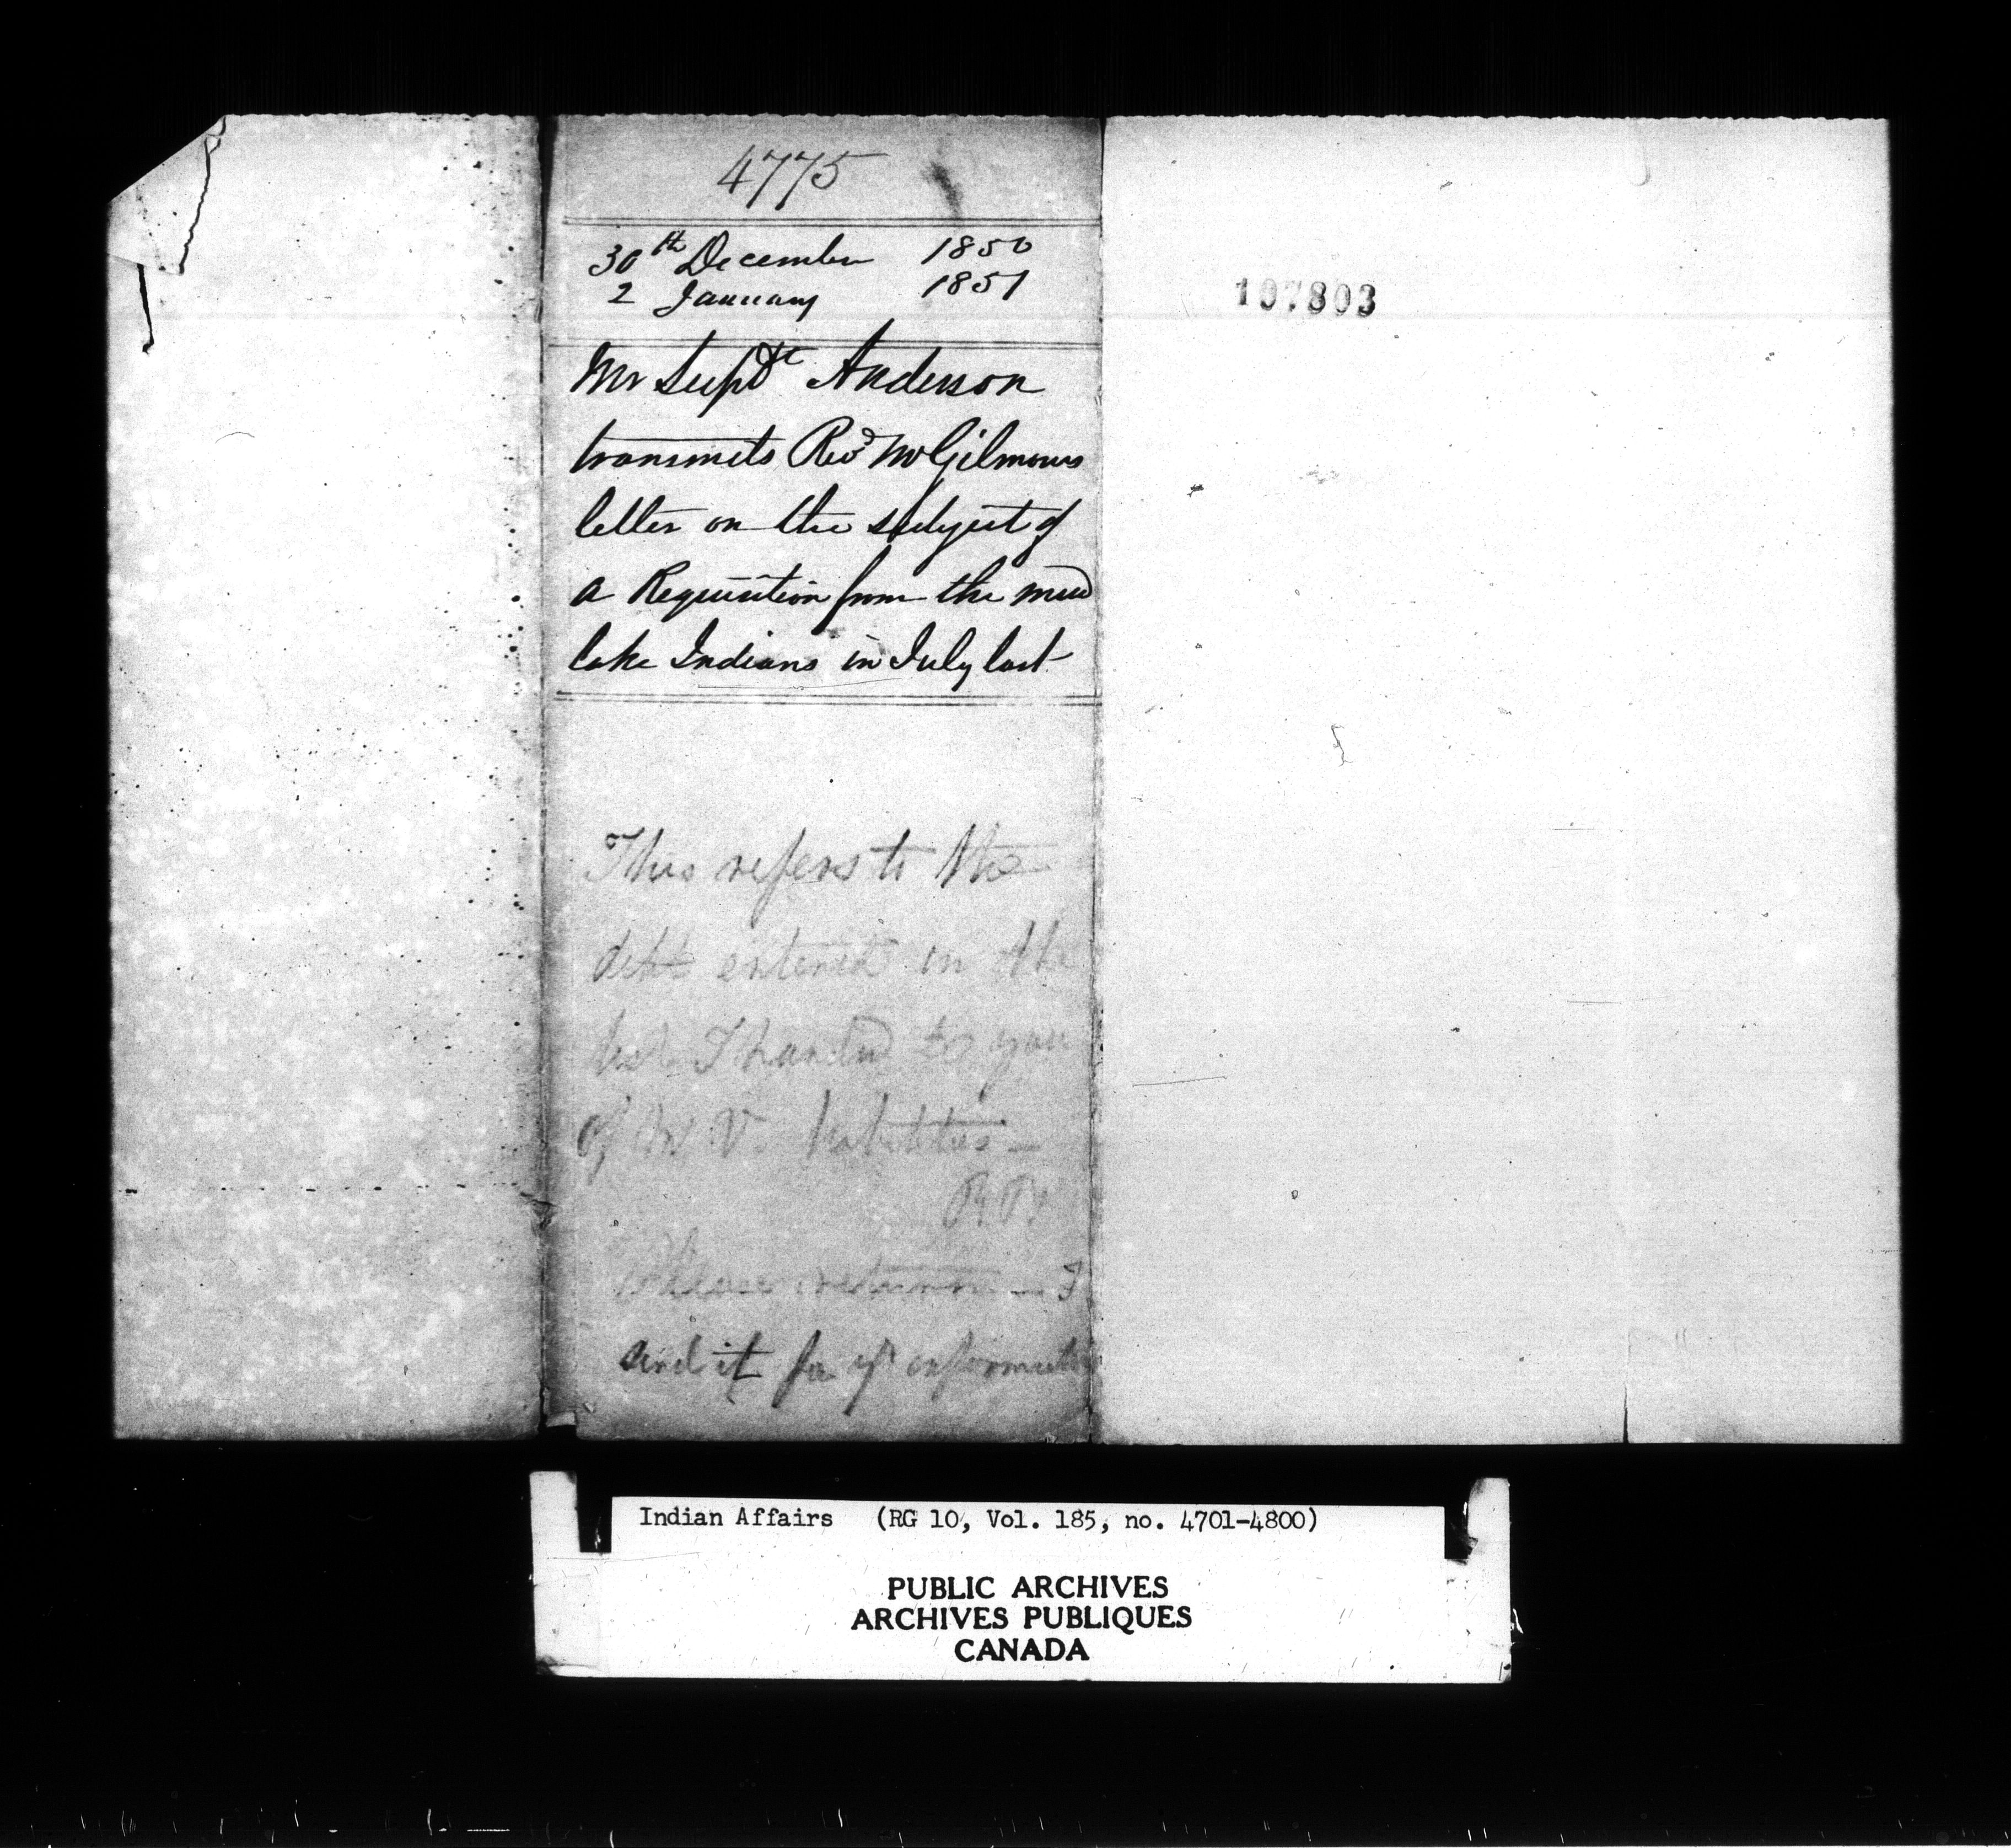 4775
30th December 1850
2 January 1851
Mr Supdt Anderson
transmits Revd Mr Gilmours
letter on the subject of
a Requisition from the mud
lake Indians in July last
107803
This refers to the
debt entered in the
list I handed to you
of
Please return - I
send it for yr information
Indian Affairs (RG 10, Vol. 185, no. 4701-4800)
PUBLIC ARCHIVES
ARCHIVES PUBLIQUES
CANADA